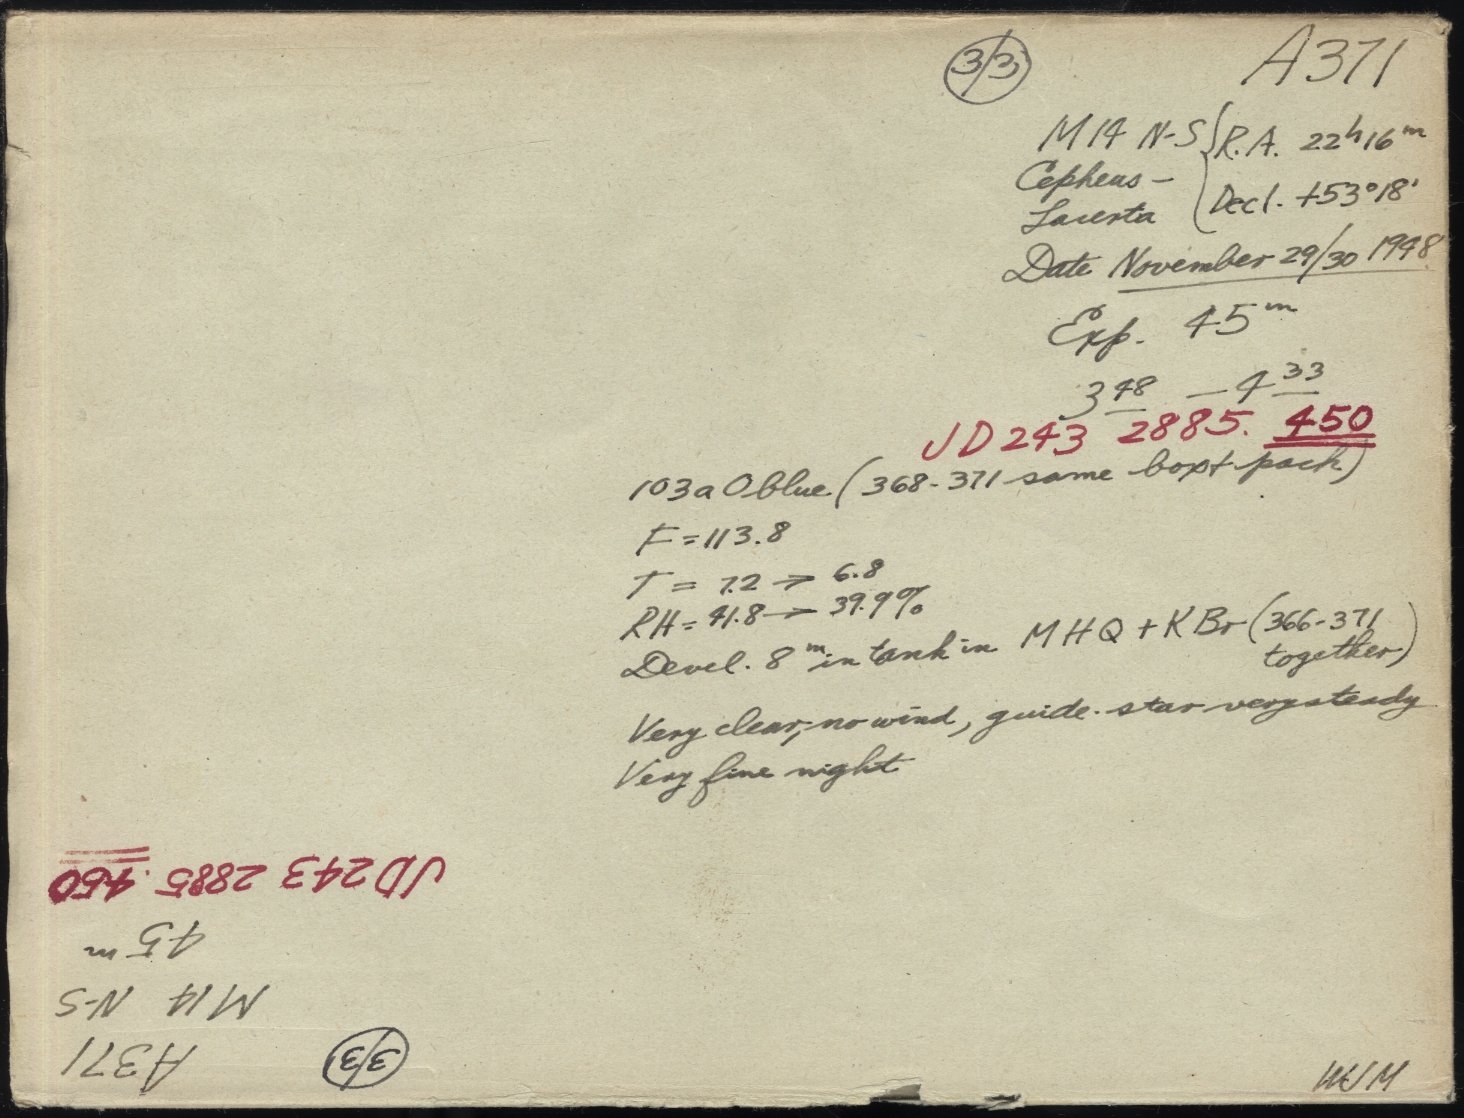 3/3 A371
M14 N-S { R.A. 22h16m
Cepheus -
Lacerta Decl. +53°18'
Date November 29/30 1948
Exp. 45m
3 48 - 4 33
JD 243 2885. 450
103a O blue (368-371 same box+pack)
F = 113.8
T = 7.2 → 6.8
RH = 41.8 → 39.9%
Devel. 8m in tank in MHQ + KBr (366-371
together)
Very clear, no wind, guide-star very steady
Very fine night
WJM
A371 3/3
M14 N-S
45m
JD 243 2885. 450